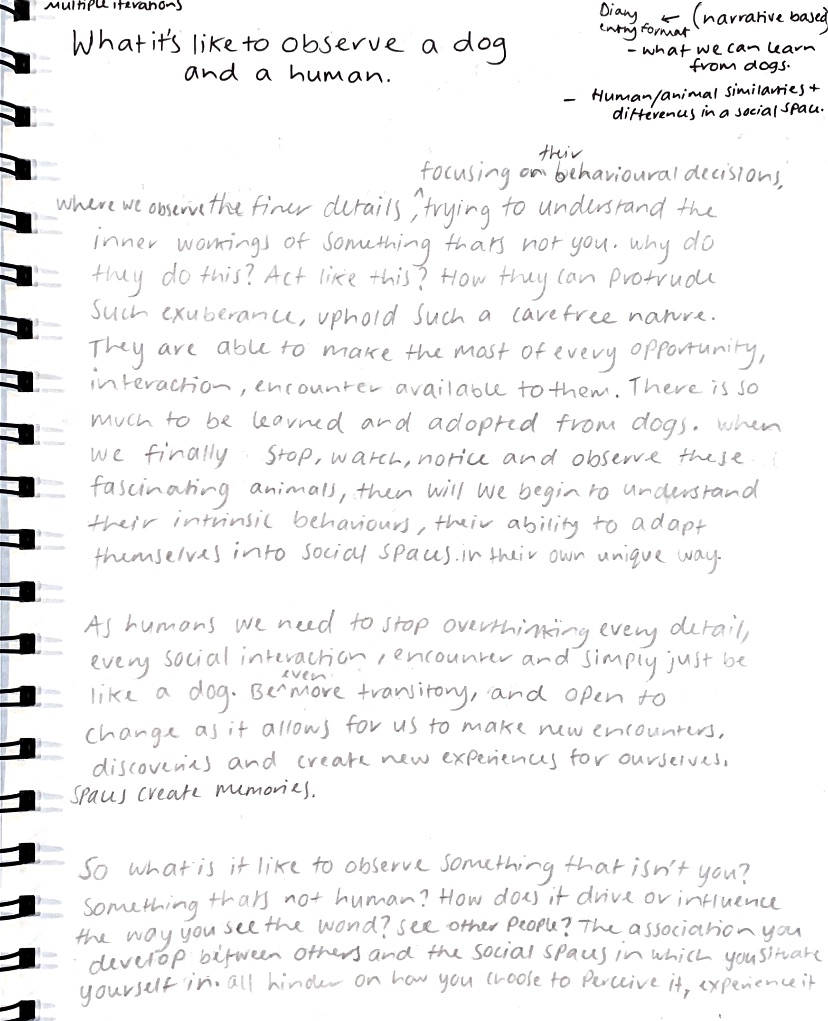 Multiple iterations
Diary ← (narrative based)
entry format
- what we can learn
from dogs.
- Human/animal similarities +
differences in a social space.
What it's like to observe a dog
and a human.
their
focusing on behavioural decisions,
where we observe the finer details, ^trying to understand the
inner workings of something thats not you. Why do
they do this? Act like this? How they can protrude
such exuberance, uphold such a carefree nature.
They are able to make the most of every opportunity,
interaction, encounter available to them. There is so
much to be learned and adopted from dogs. When
we finally stop, watch, notice and observe these
fascinating animals, then will we begin to understand
their intrinsic behaviours, their ability to adapt
themselves into social spaces. in their own unique way.
As humans we need to stop overthinking every detail,
every social interaction, encounter and simply just be
even
like a dog. Be ^more transitory, and open to
change as it allows for us to make new encounters,
discoveries and create new experiences for ourselves.
Spaces create memories.
So what is it like to observe something that isn't you?
Something thats not human? How does it drive or influence
the way you see the world? See other people? The association you
develop between others and the social spaces in which you situate
yourself in. all hinder on how you choose to perceive it, experience it